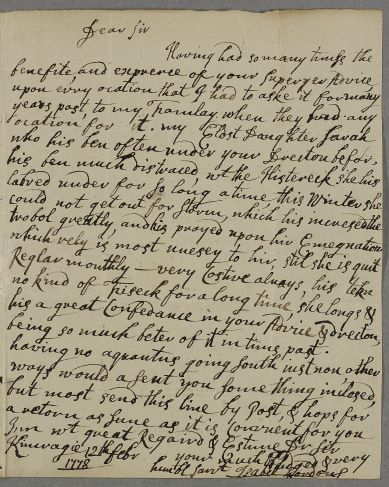 Dear Sir
Having had so many times the
benefite and expreree of your Superyer Advice
upon evry ocation that I had to aske it for many
years past to my Framlay when they had any
ocation for it. my Eldst Daughter Sarah
who his ben often under your Direction befor.
his ben much distraced wt the Histereck she his
labred under for so long a time, this Winter she
could not get out for Storm, which his incresed the
trobol greatly, and his prayed upon hir Emegnation
which rely is most unesey to hir, still she is quit
Reglar monthly - very Costive always, his tekn
no kind of Phiseck for a long time, she longs &
his a great Confedance in your Advice & drecton,
being so much beter of it in time past.
having no aquantus going South just non other
ways would a sent you Some thing inclosed,
but most send this line by Post, & hops for
a retorn as sune as it is Convenent for you
I'm wt great Regaird & Estume Dr Sir
Kinvragie 12th Febr your much and very
1778 humbl Sarvt Isabel